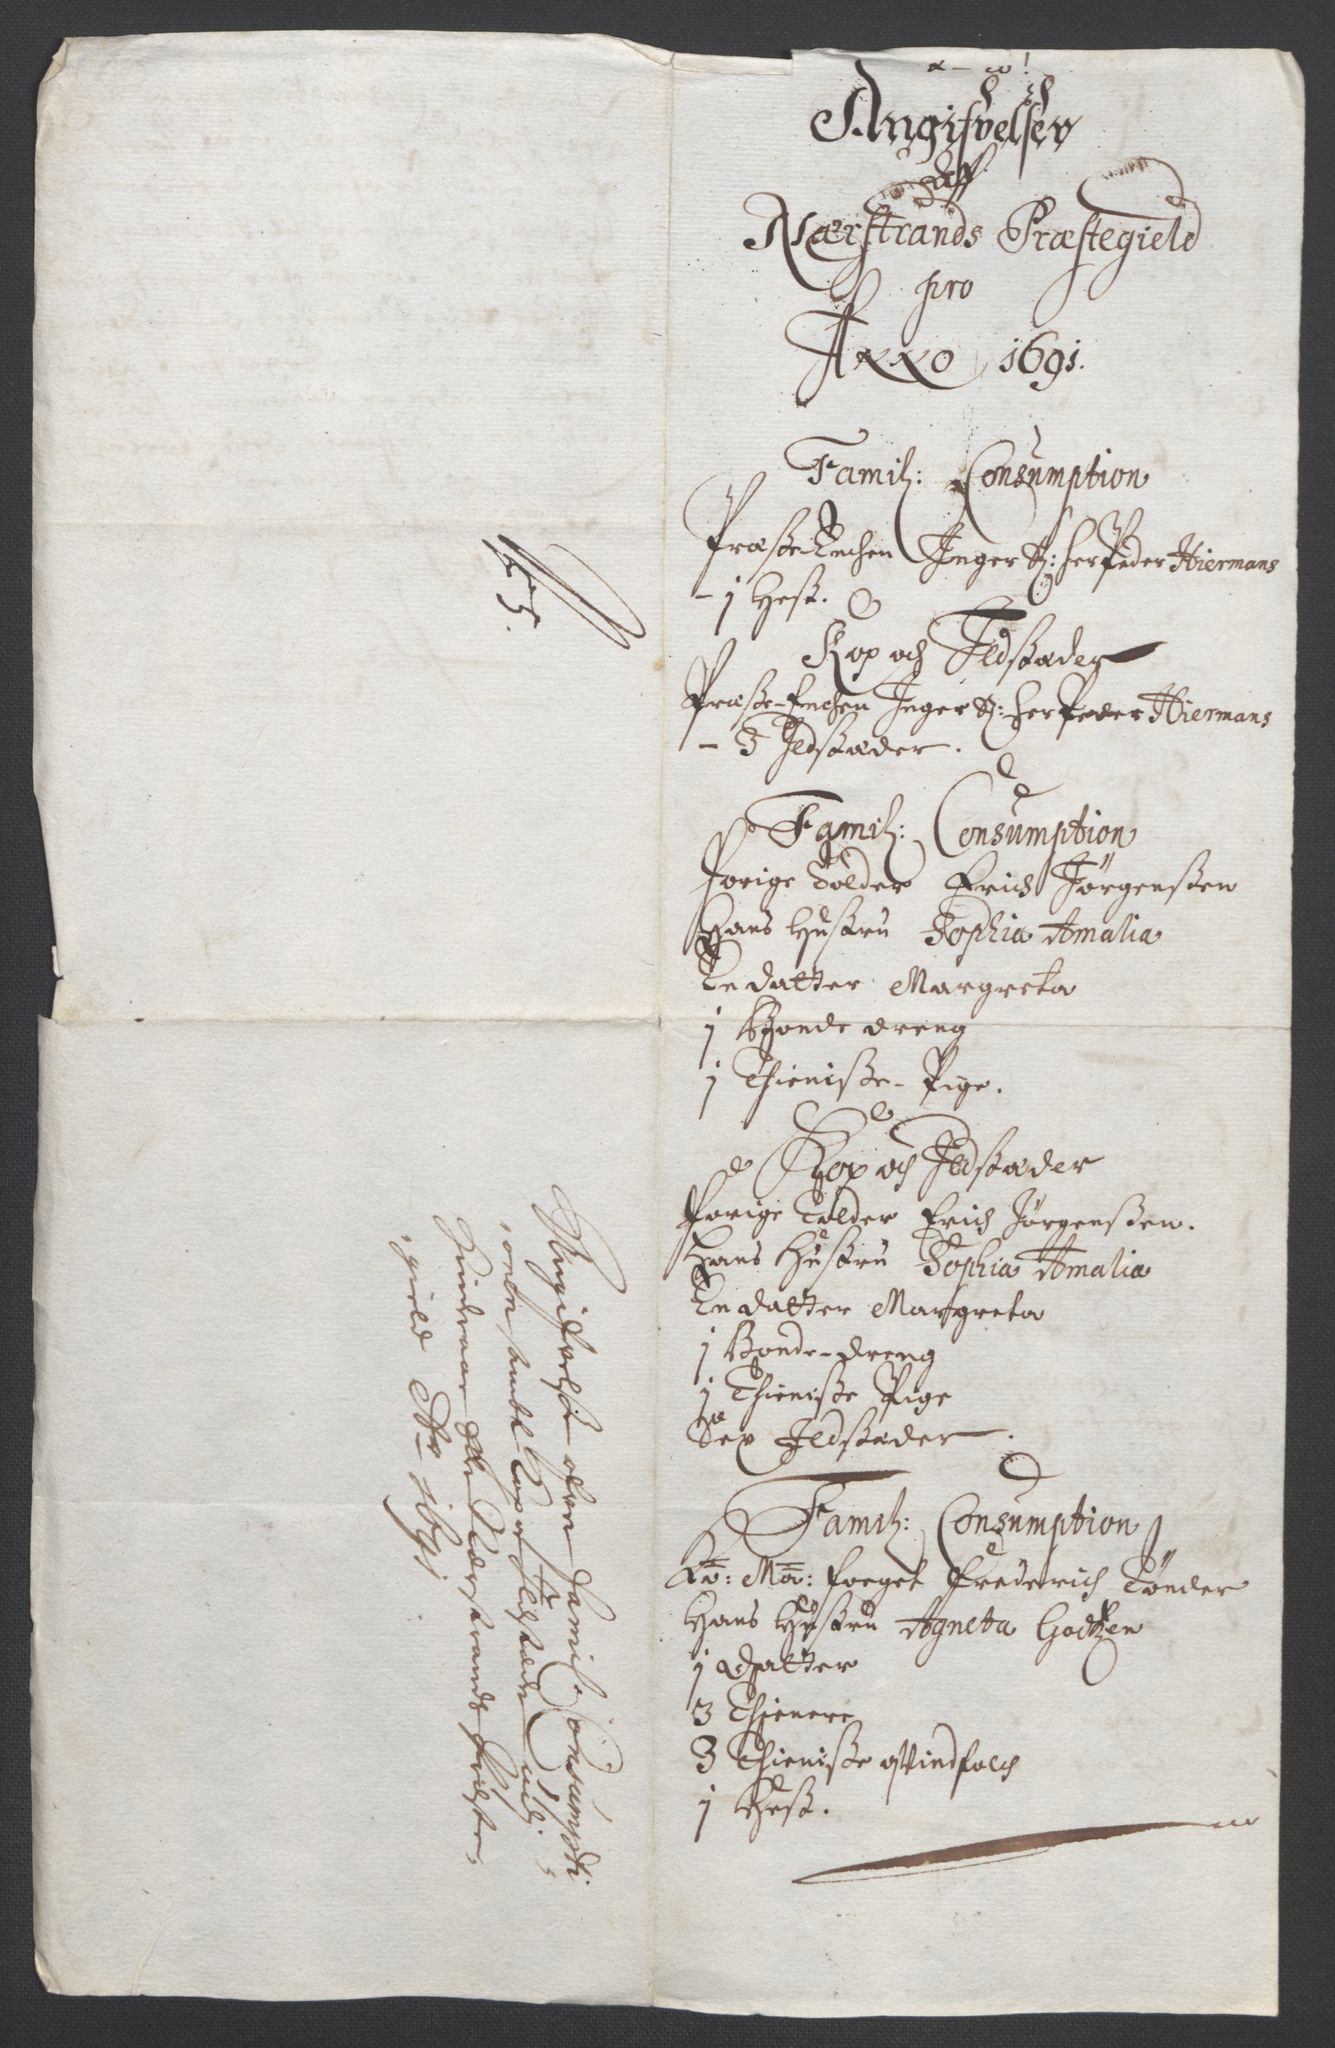 Angifvelser
Aff
Nærstrands Præstegield
pro
Anno 1691.
Famil: Consumption
Præste-Enchen Inger Sl: Her Peder Hiermans
- 1 Hest.
Kop och Ildstæder
Præste-Enchen Inger Sl: Her Peder Hiermans
- 3 Ildstæder.
Famil: Consumption
Forige Tolder Erich Jørgenssen
Hans Hustru Sophia Amalia
En datter Margreta
1 Bonde dreng
1 Thieniste-Pige.
Kop och Ildstæder
Forige Tolder Erich Jørgenssen.
Hans Hustru Sophia Amalia
En datter Margreta
1 Bonde-dreng
1 Thieniste Pige
Sex Ildstæder.
Famil: Consumption
Ko: Ma: foeget Frederich Tønder
Hans Hustru Agneta Godtzen
1 Datter
3 Thienere
3 Thieniste qvindfolch
1 Hest.
No 5.
Angifvelse ofver Famil: Consumpti-
onen sambt Kop og Ildstæder udj
Nærstrands Præste-
gield Ao 1691